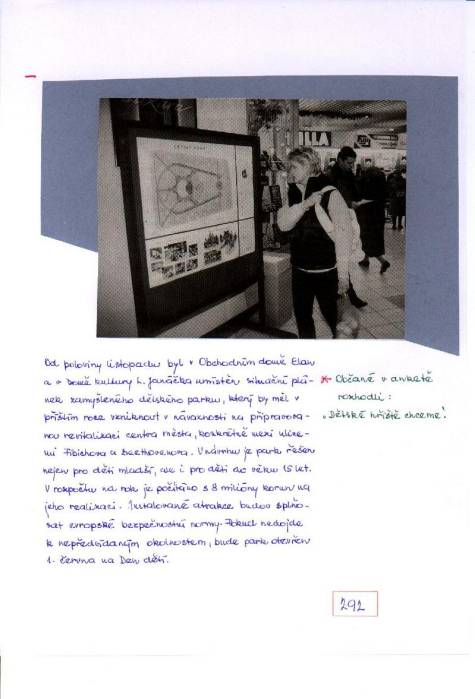 DĚTSKÝ PARK
ILLA
Od poloviny listopadu byl v Obchodním domě Elan
a v Domě kultury L. Janáčka umístěn situační plá-
nek zamýšleného dětského parku, který by měl v
příštím roce vzniknout v návaznosti na připravova-
nou revitalizaci centra města, konkrétně mezi ulice-
mi Fibichova a Beethovenova. V návrhu je park řešen
nejen pro děti mladší, ale i pro děti do věku 15 let.
V rozpočtu na rok je počítáno s 8 milióny korun na
jeho realizaci. Instalované atrakce budou splňo-
vat evropské bezpečnostní normy. Pokud nedojde
k nepředvídaným okolnostem, bude park otevřen
1. června na Den dětí.
* Občané v anketě
rozhodli:
Dětské hřiště chceme!
292